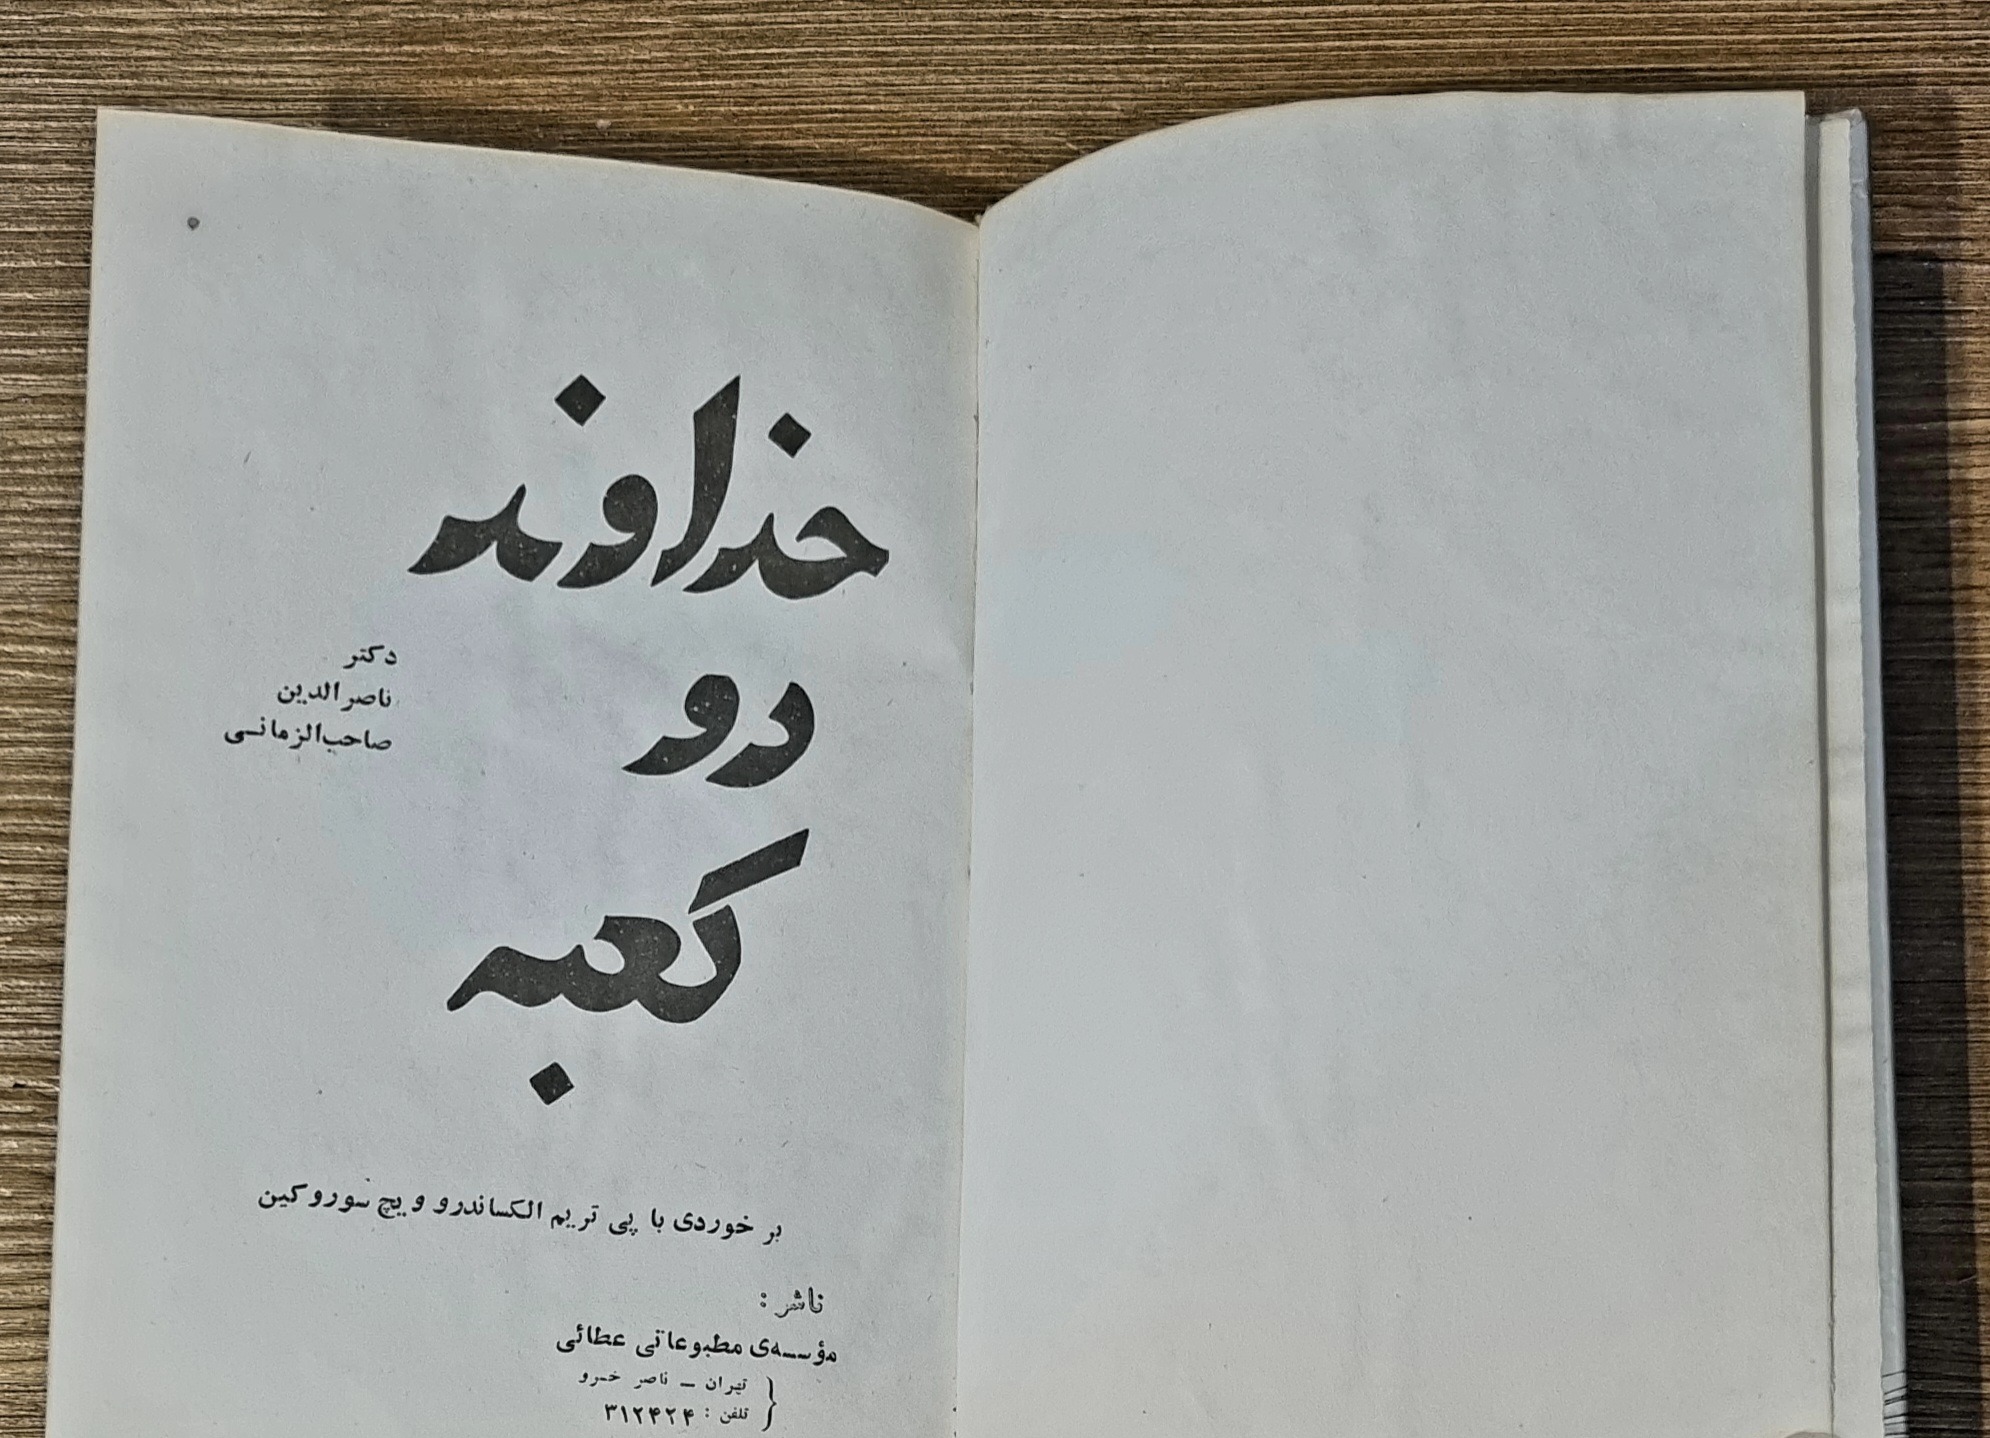 خداوند
دو
کعبه
دکتر
ناصرالدین
صاحب‌الزمانی
برخوردی با پی تریم الکساندرو ویچ سوروکین
ناشر :
مؤسسه‌ی مطبوعاتی عطائی
تهران – ناصر خسرو
تلفن : ۳۱۲۴۲۴